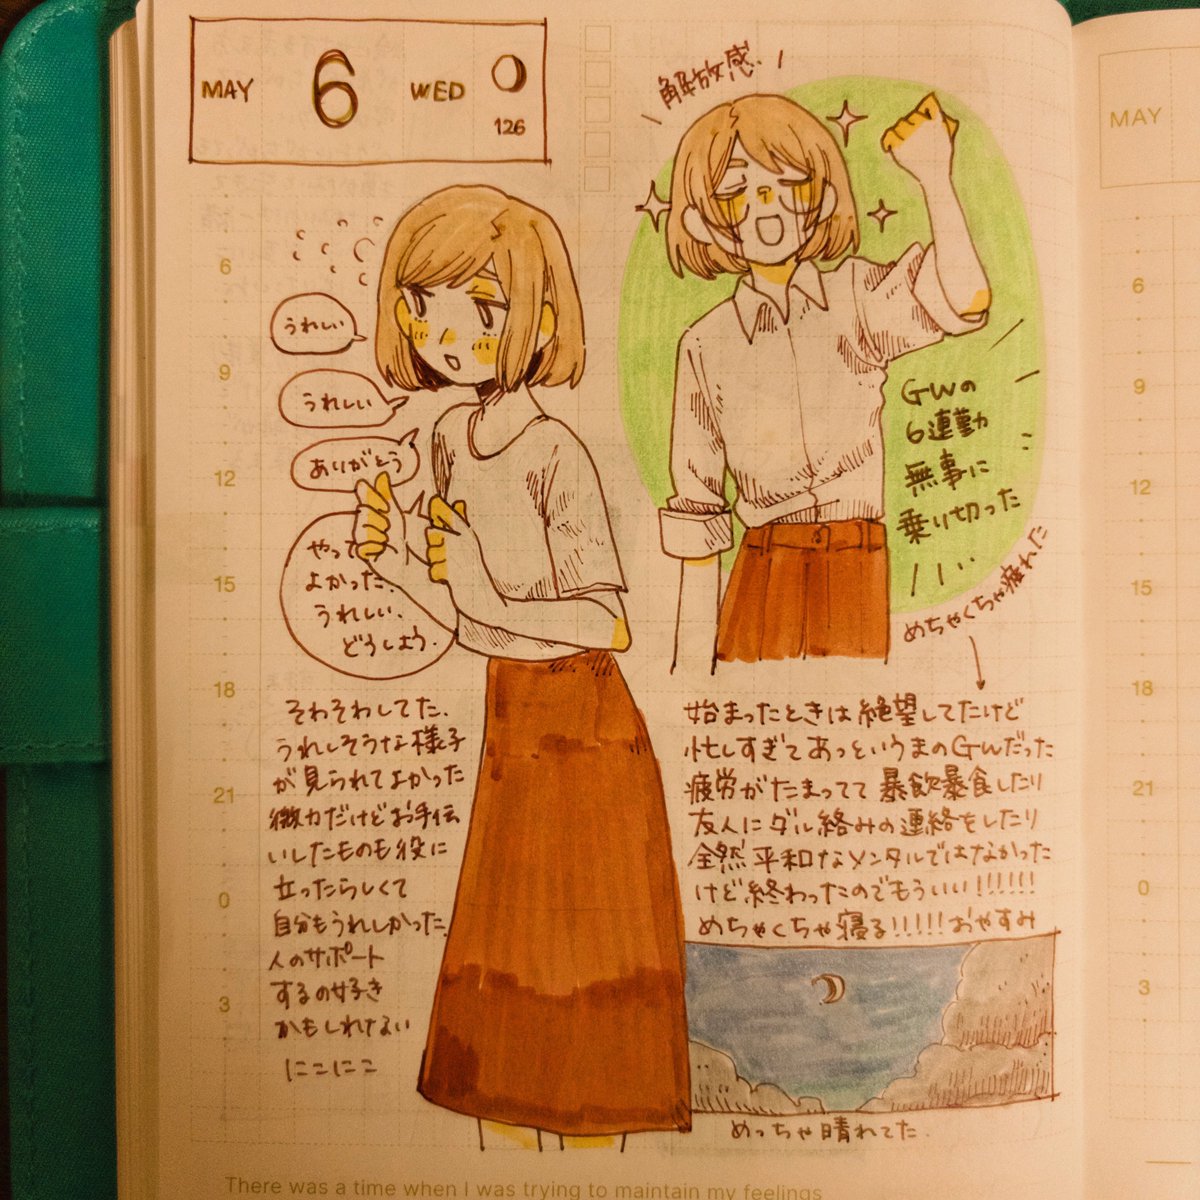 MAY 6 WED
126
うれしい
うれしい
ありがとう
やって
よかった、
うれしい、
どうしよう.
そわそわしてた、
うれしそうな様子
が見られてよかった
微力だけどお手伝
いしたものも役に
立ったらしくて
自分もうれしかった、
人のサポート
するの好き
かもしれない
にこにこ
解放感
GWの
6連勤
無事に
乗り切った
めちゃくちゃ疲れた
始まったときは絶望してたけど
忙しすぎてあっというまのGWだった
疲労がたまってて暴飲暴食したり
友人にダル絡みの連絡をしたり
全然平和なメンタルではなかった
けど終わったのでもういい!!!!!!
めちゃくちゃ寝る!!!!!おやすみ
めっちゃ晴れてた.
6
9
12
15
18
21
0
3
There was a time when I was trying to maintain my feelings
MAY
6
9
12
15
18
21
0
3